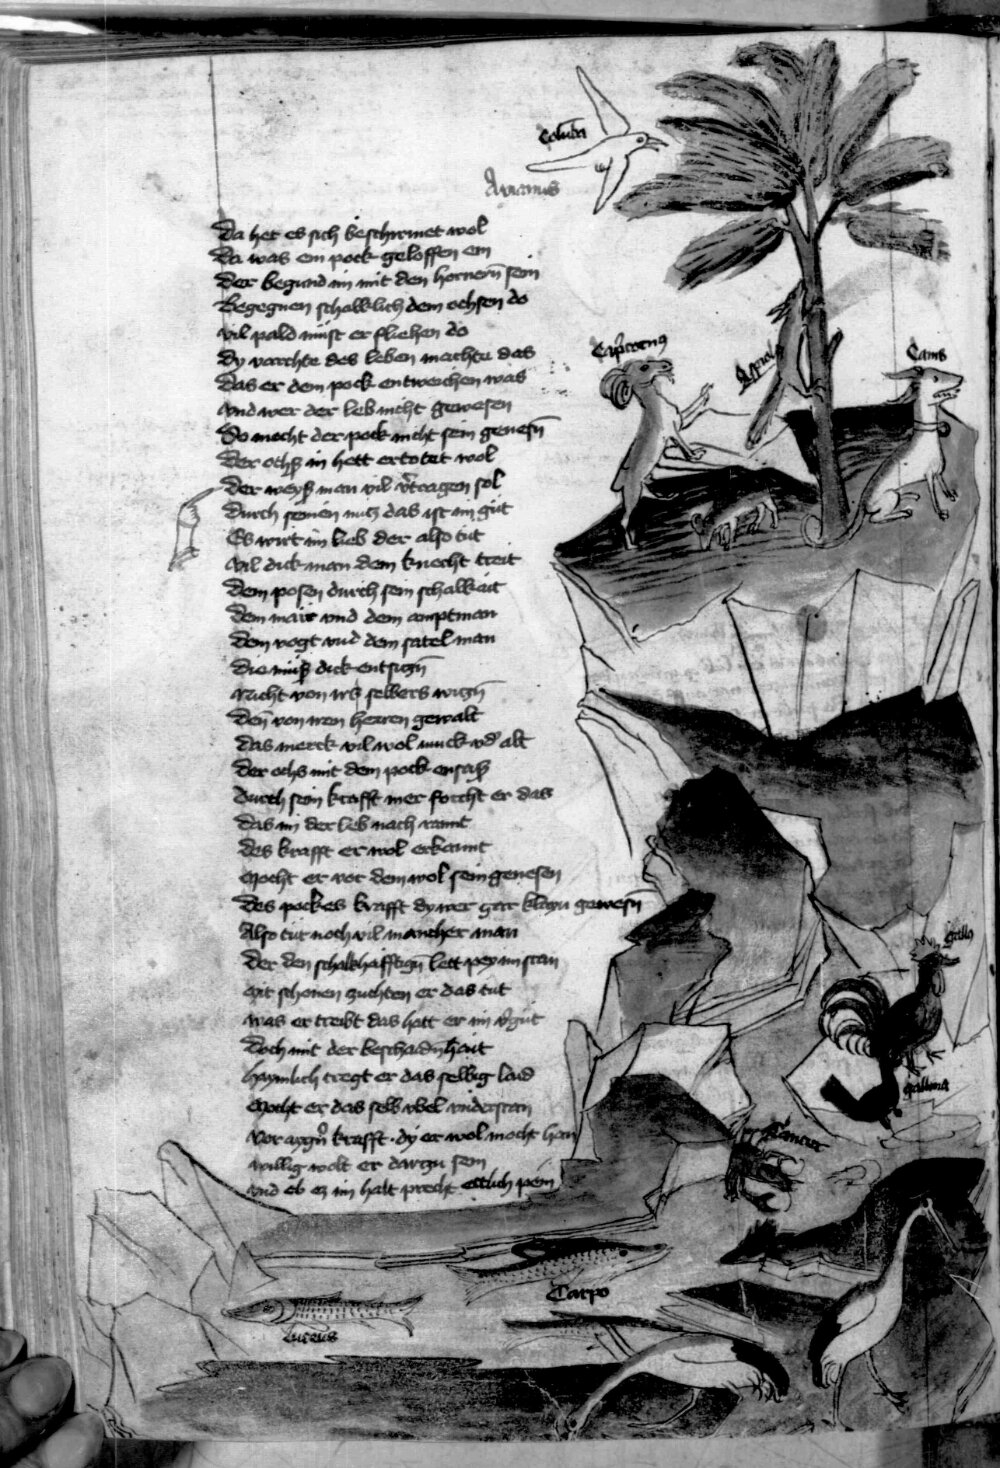 Colūba
Avianus
Da het es sich beschirmet wol
Da was ein pock geloffen ein
Der begund im mit den hornern sein
Begegnen schalklich dem ochsen do
vil pald müst er fliehen do
Dy vorchte des leben machte das
das er dem pock entweichen was
vnd wer der leb nicht gewesen
So mocht der pock nicht sein genesn̄
Der ochß in hett ertotet wol
Der weyß man vil v̄tragen sol
durch seinen nucz das ist im gůt
Es wirt im lieb der also tůt
vil dick man dem knecht treit
dem posen durch sein schalkait
dem mair vnd dem amptman
dem vogt vnd dem satelman
die müß dick entsiczn̄
nicht von irs selbers wiczn̄
den̄ von iren herren gewalt
das merck vil wol iunck vn̄ alt
der ochs mit dem pock ensaß
durch sein krafft mer forcht er das
das im der leb nach rannt
des krafft er wol erkannt
Mocht er vor dem wol sein genesen
des pockes krafft dy wer gar klayn gewesn̄
Also tůt noch vil mancher man
der den schalkhafftign̄ lett pey im stan
Mit schonen zuchten er das tůt
was er treibt das hatt er im v̄gůt
Doch mit der beschaidn̄hait
haymlich tregt er das selbig laid
Mocht er das selb vbel vnderstan
vor aygn̄ krafft dy er wol mocht han
willig wolt er darzu sein
vnd ob ez im halt precht ettlich pein
Capricornus
Canis
gallus
gallina
Cancer
Carpo
lucius